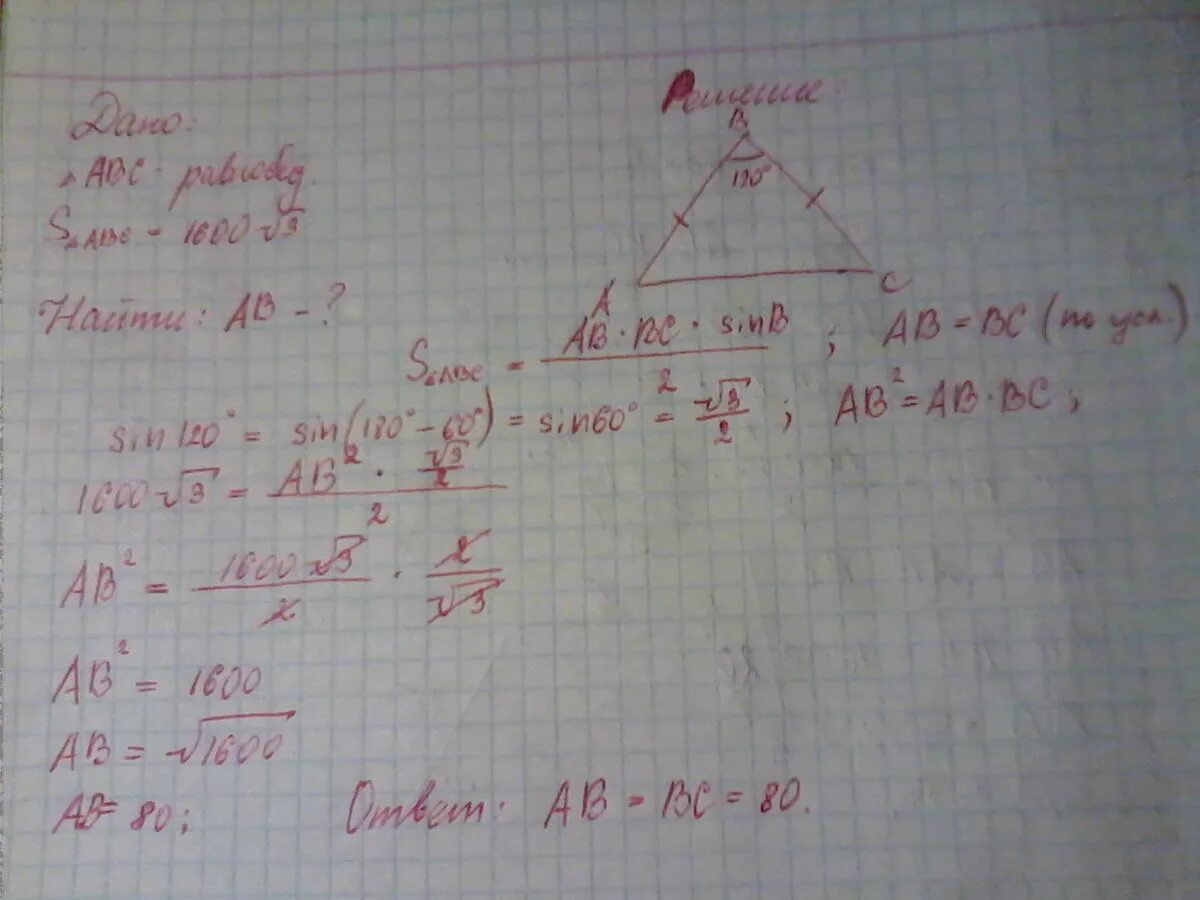 Дано:
Решение:
△ABC - равнобед.
S△ABC = 1600√3
B
120°
A
C
Найти: AB - ?
S△ABC = (AB · BC · sinB) / 2 ; AB = BC (по усл.)
sin120° = sin(180° - 60°) = sin60° = √3/2 ; AB² = AB · BC ;
1600√3 = (AB² · √3/2) / 2
AB² = 1600√3 / 2 · 2/√3
AB² = 1600
AB = √1600
AB = 80;
Ответ: AB = BC = 80.